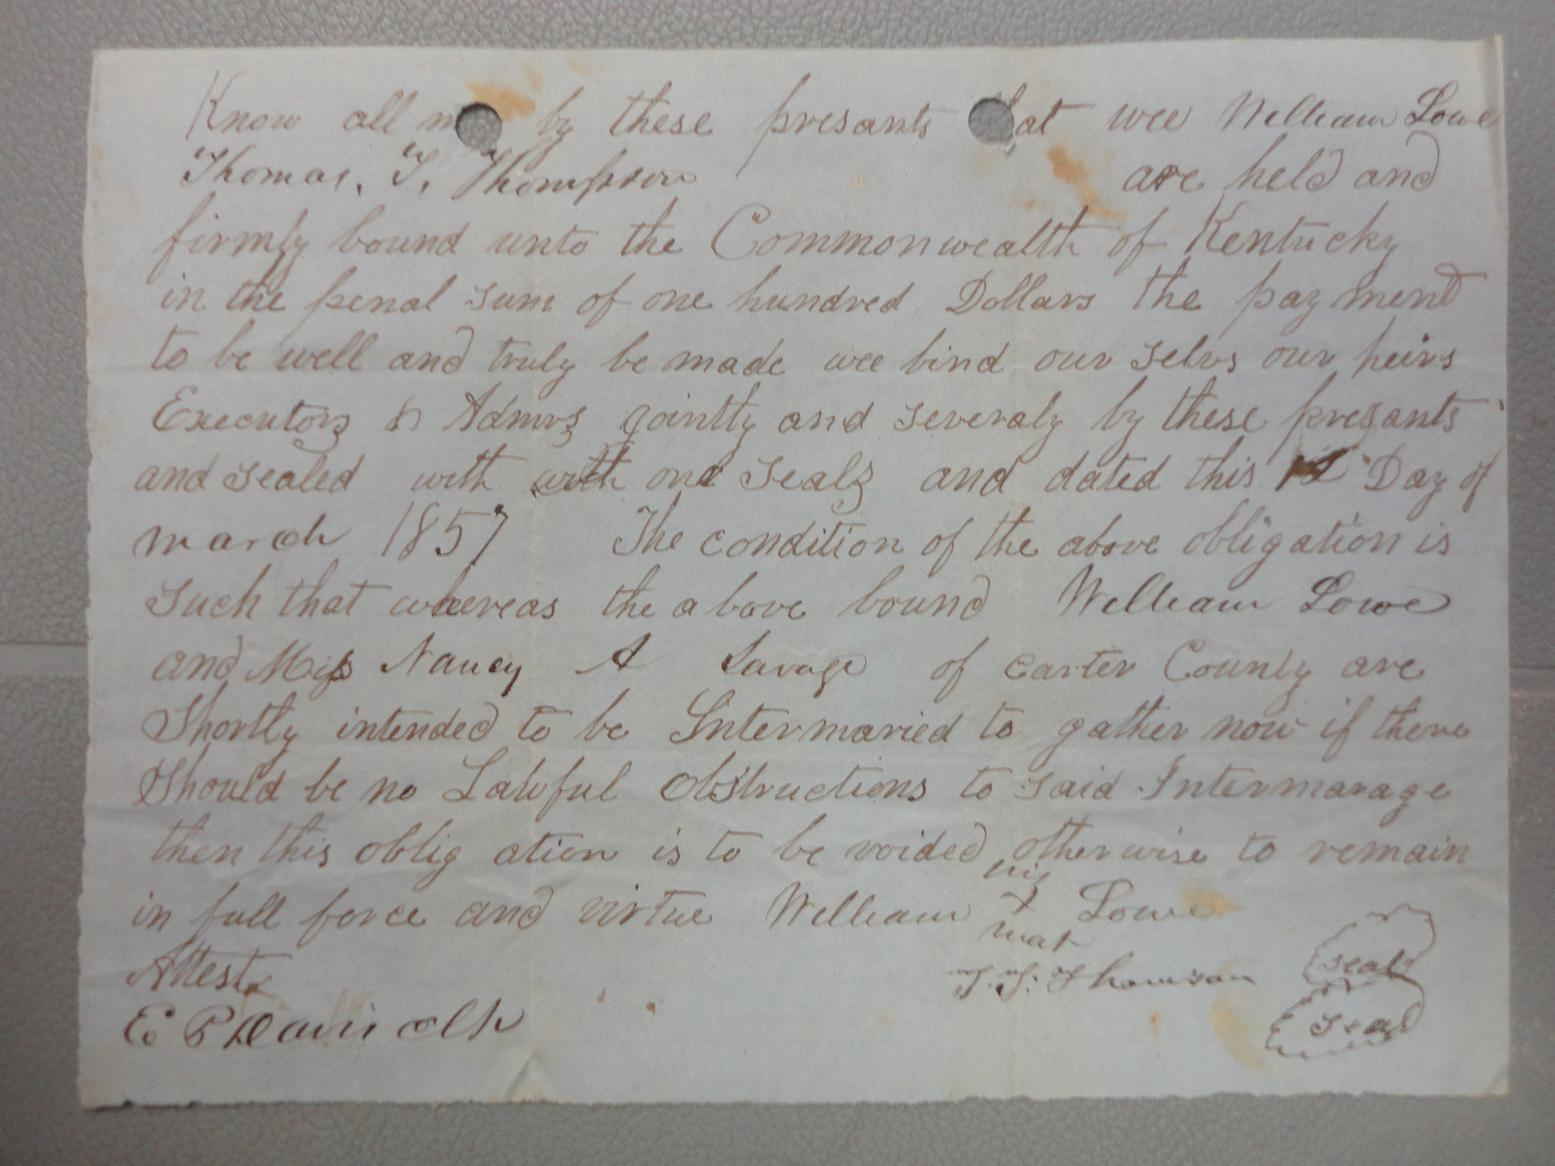 Know all m by these presants at wee William Lowe
Thomas. T. Thompson are held and
firmly bound unto the Commonwealth of Kentucky
in the penal sum of one hundred Dollars the payment
to be well and truly be made wee bind our selvs our heirs
Executors & Admrs jointly and severaly by these presants
and sealed with with our seals and dated this Day of
march 1857 The condition of the above obligation is
Such that whereas the above bound William Lowe
and Miss Nancy A Savage of carter County are
Shortly intended to be Intermaried to gather now if there
Should be no Lawful Obstructions to said Intermarage
then this oblig ation is to be voided otherwise to remain
in full force and virtue William his x mark Lowe
Attest. T. T. Thomson seal
E P Davis clk seal